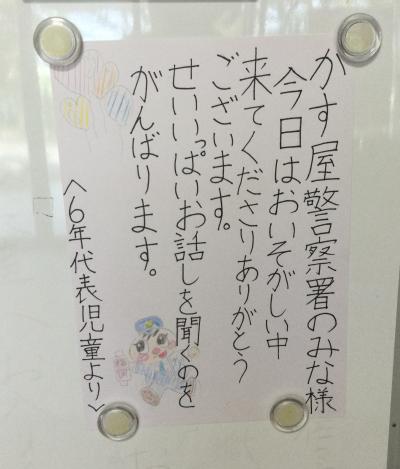 かす屋警察署のみな様
今日はおいそがしい中
来てくださりありがとう
ございます。
せいいっぱいお話しを聞くのを
がんばります。
〈6年代表児童より〉